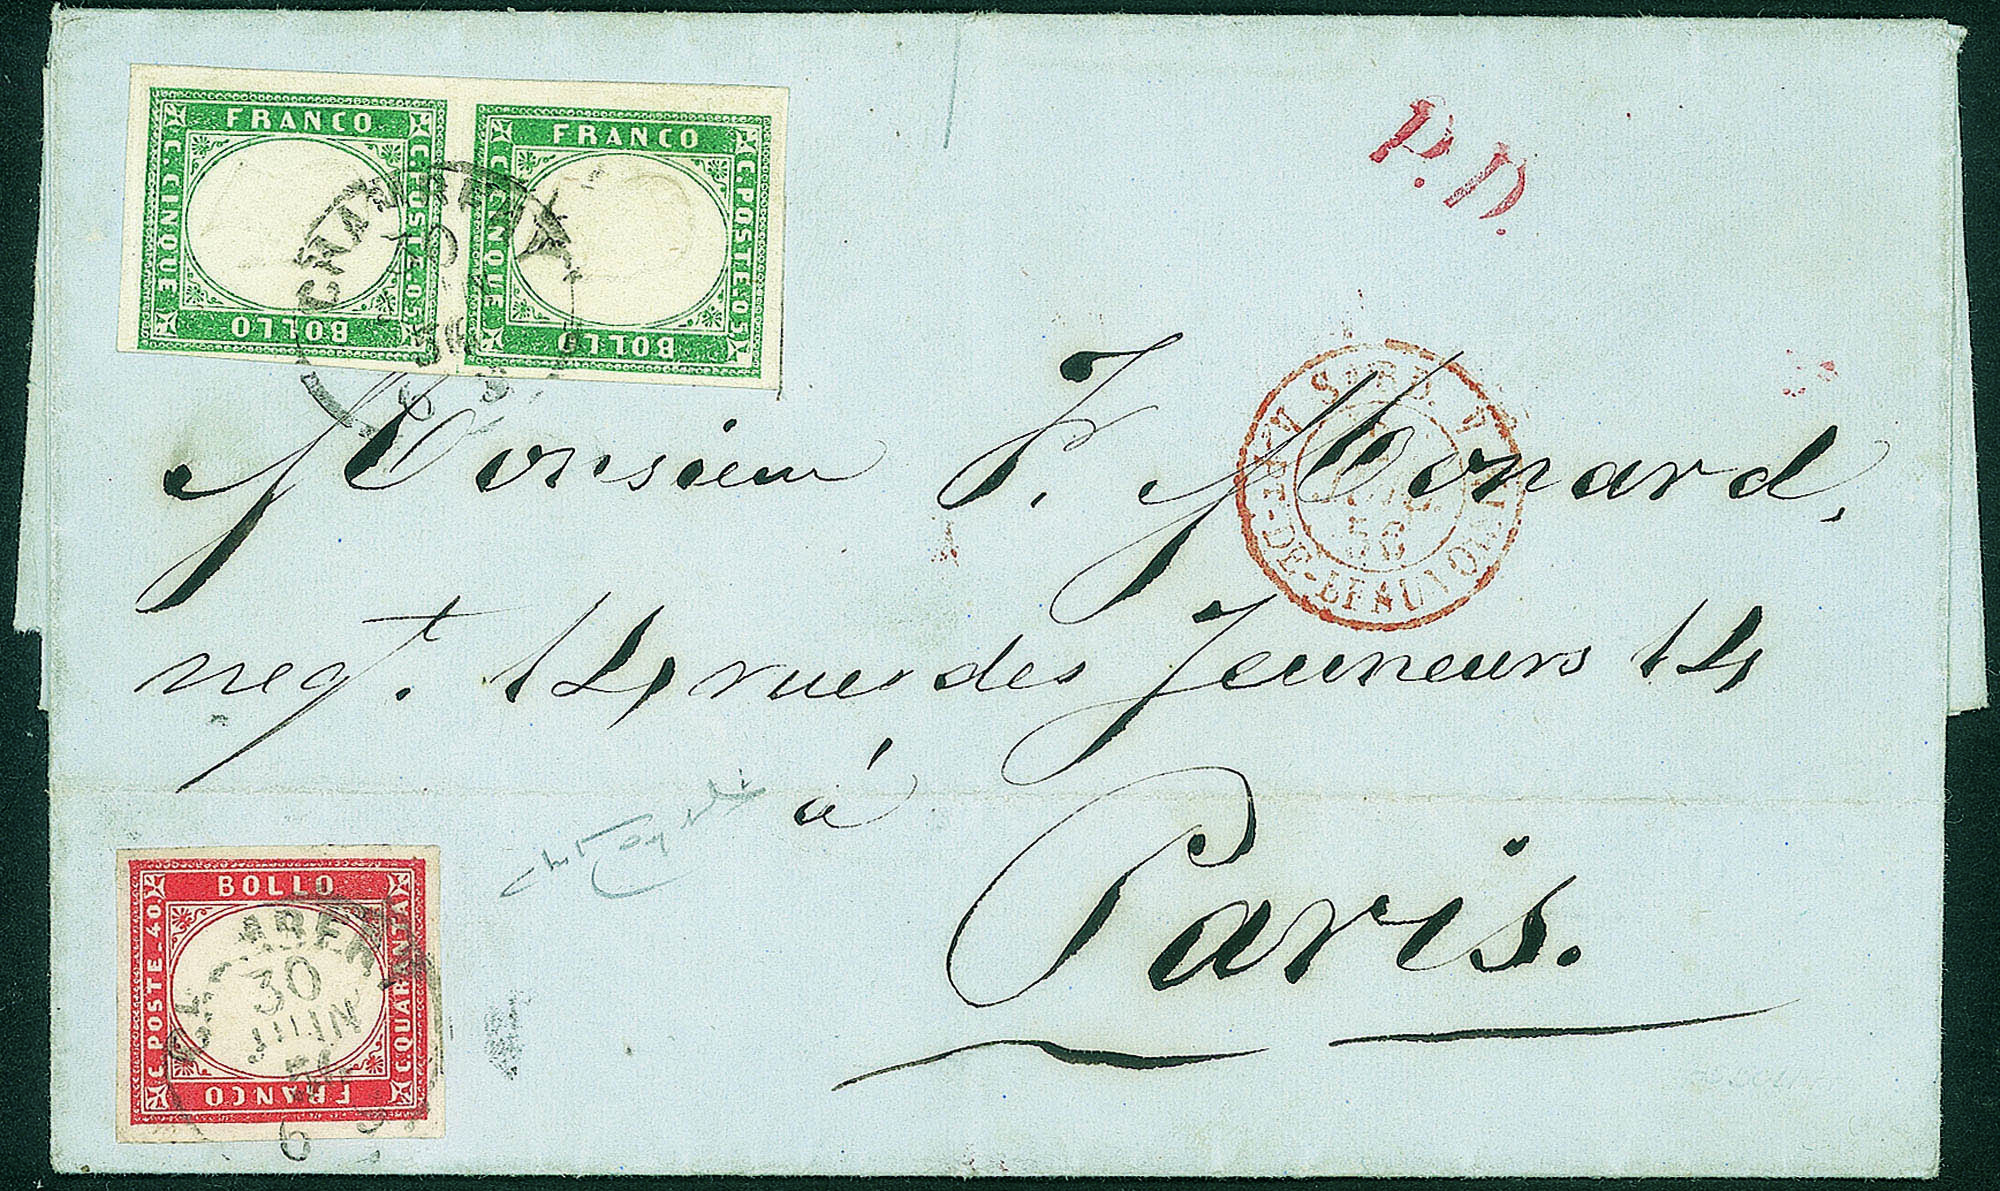 FRANCO
C. CINQUE
C. POSTE. 05
BOLLO
FRANCO
C. CINQUE
C. POSTE. 05
BOLLO
CHAMBERY
30
56
6 S
P.D.
SARD.
PT-DE-BEAUVOISIN
JUIL.
56
Monsieur F. Monard,
negt. 14 rue des Jeuneurs 14
à
Paris.
BOLLO
C. POSTE. 40
C. QUARANTA
FRANCO
CHAMBERY
30
JUIN
56
6 S